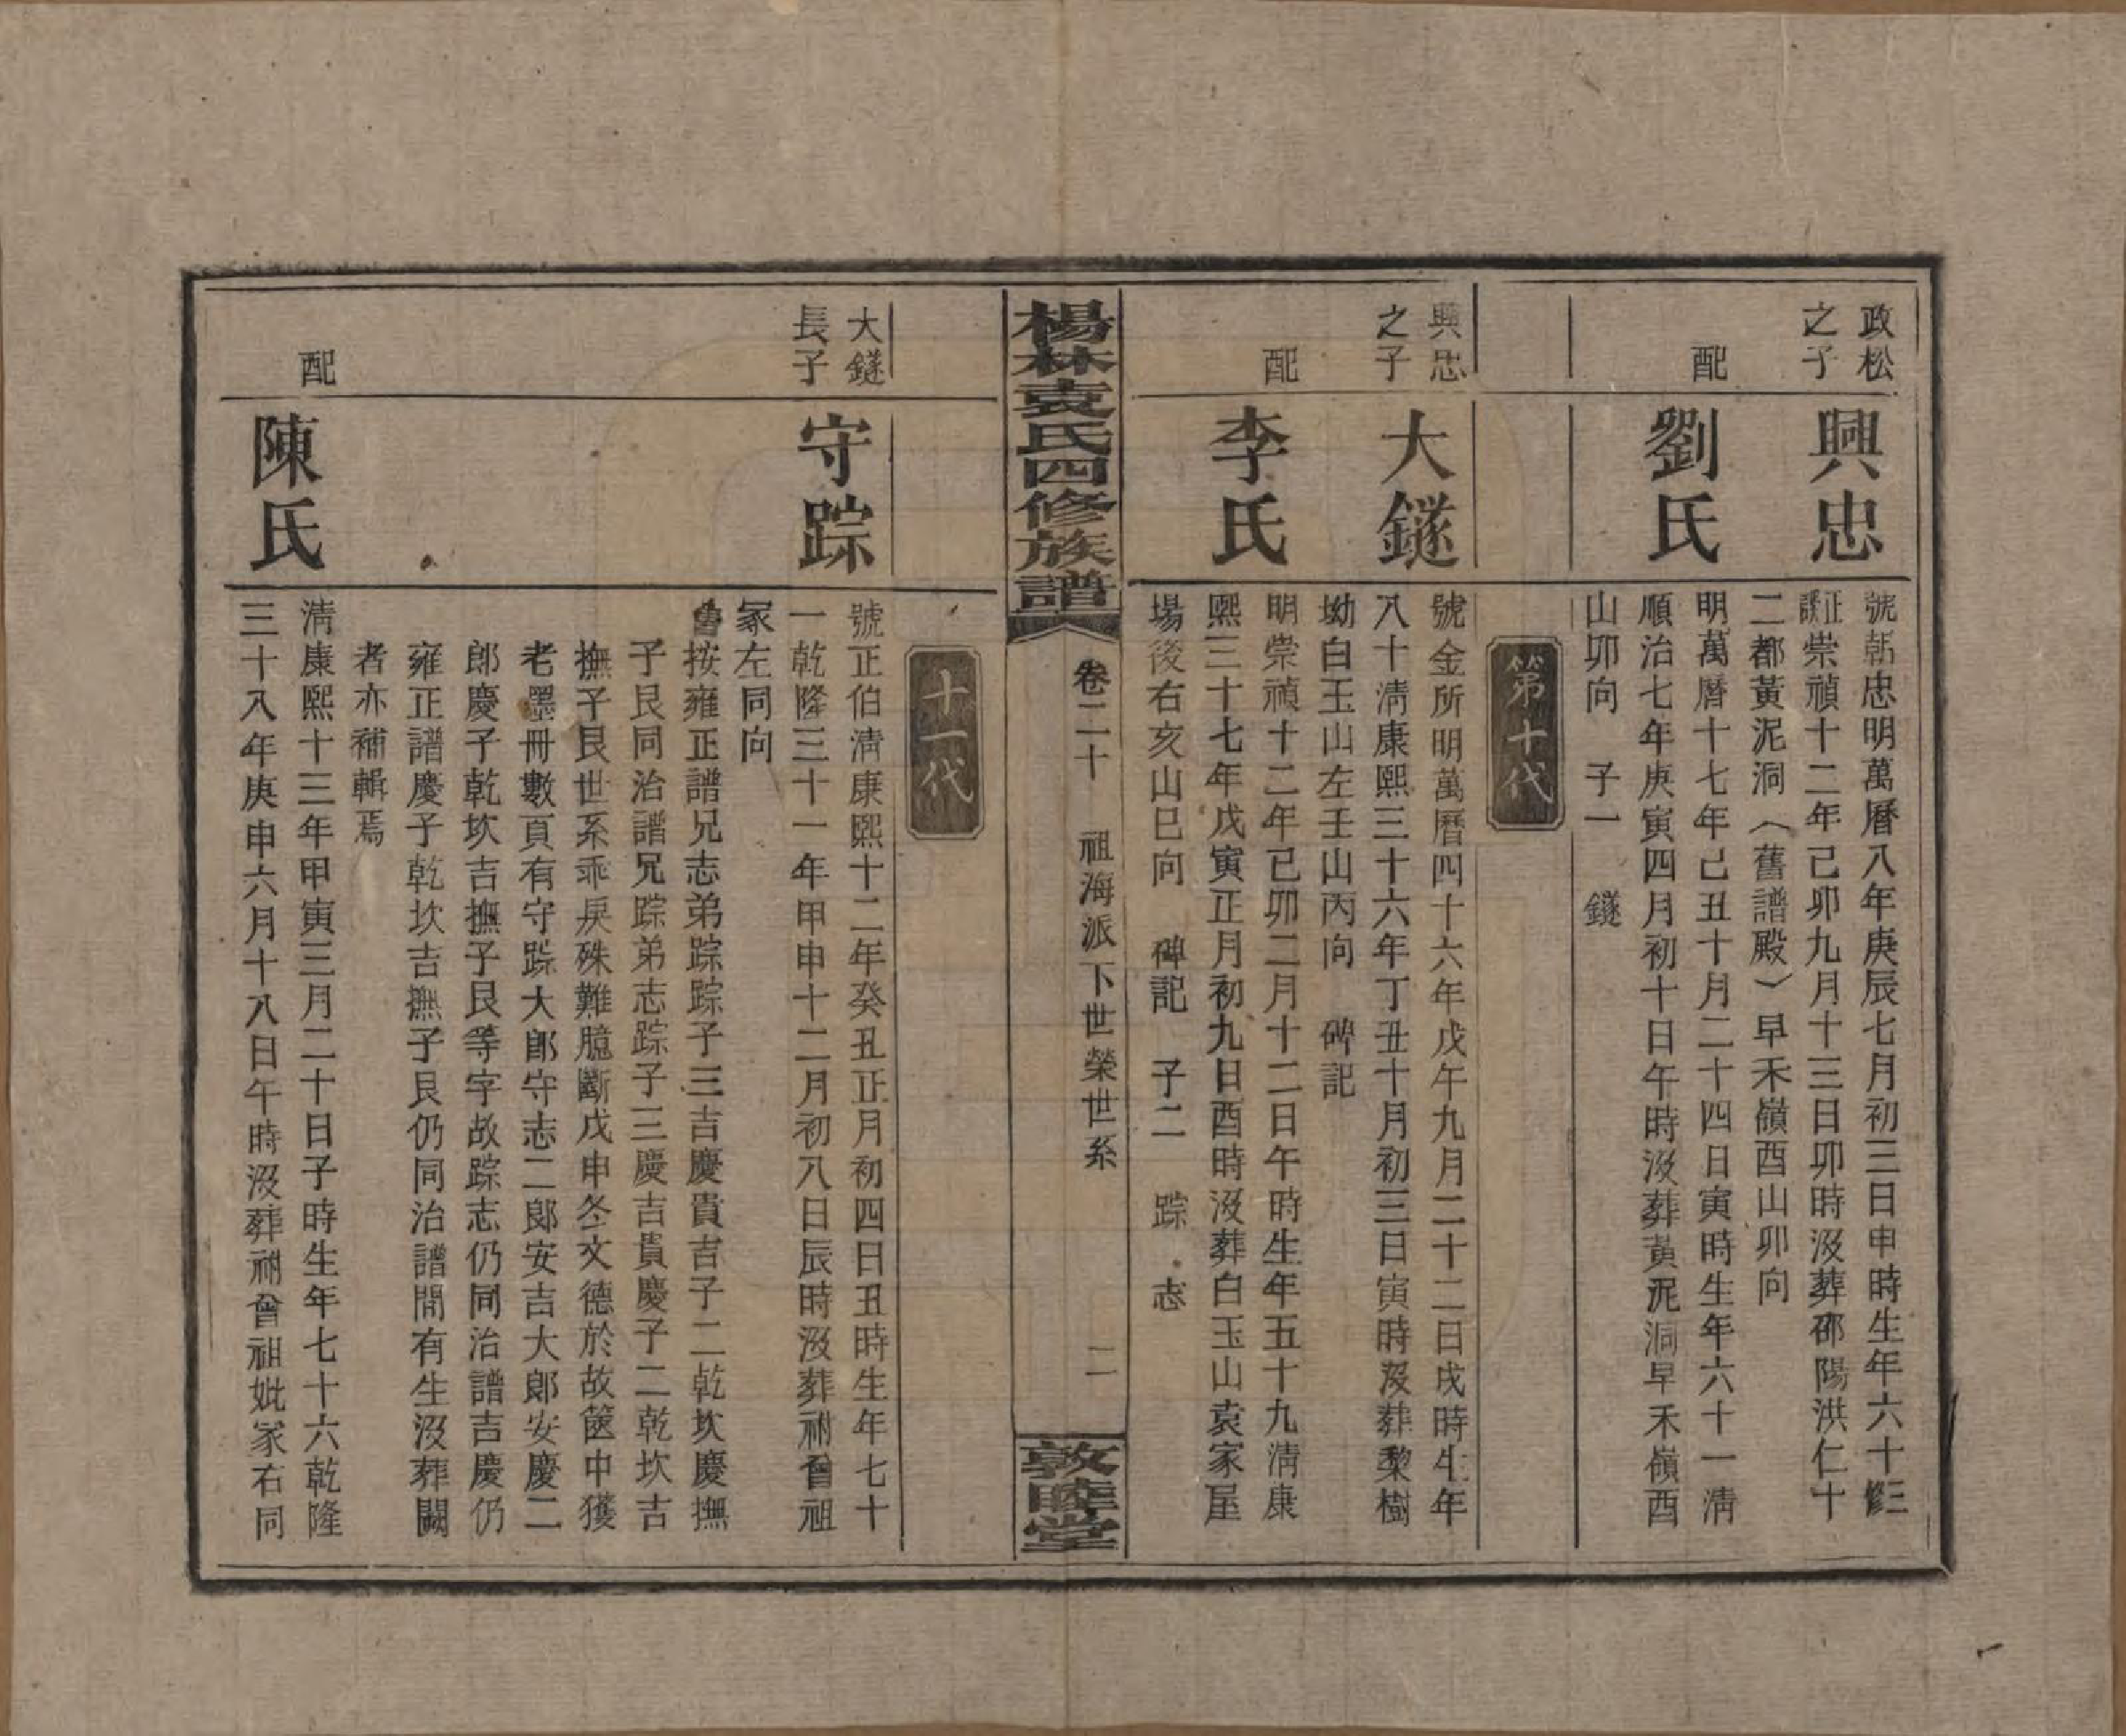 政松
之子
興忠
號朝忠明萬曆八年庚辰七月初三日申時生年六十三修
正譌崇禎十二年己卯九月十三日卯時沒葬邵陽洪仁十
二都黃泥洞（舊譜殿）早禾嶺酉山卯向
配
劉氏
明萬曆十七年己丑十月二十四日寅時生年六十一清
順治七年庚寅四月初十日午時沒葬黃泥洞早禾嶺酉
山卯向 子一 鐩
第十代
興忠
之子
大鐩
號金所明萬曆四十六年戊午九月二十二日戌時生年
八十清康熙三十六年丁丑十月初三日寅時沒葬梨樹
坳白玉山左壬山丙向 碑記
配
李氏
明崇禎十二年己卯二月十二日午時生年五十九清康
熙三十七年戊寅正月初九日酉時沒葬白玉山袁家屋
場後右亥山巳向 碑記 子二 踪 志
楊林袁氏四修族譜
卷二十 祖海派下世榮世系
二
敦睦堂
十一代
大鐩
長子
守踪
號正伯清康熙十二年癸丑正月初四日丑時生年七十
一乾隆三十一年甲申十二月初八日辰時沒葬祔曾祖
冢左同向
魯按雍正譜兄志弟踪踪子三吉慶貴吉子二乾坎慶撫
子艮同治譜兄踪弟志踪子三慶吉貴慶子二乾坎吉
撫子艮世系乖戾殊難臆斷戊申冬文德於故篋中獲
老墨冊數頁有守踪大郎守志二郎安吉大郎安慶二
郎慶子乾坎吉撫子艮等字故踪志仍同治譜吉慶仍
雍正譜慶子乾坎吉撫子艮仍同治譜間有生沒葬闕
者亦補輯焉
配
陳氏
清康熙十三年甲寅三月二十日子時生年七十六乾隆
三十八年庚申六月十八日午時沒葬祔曾祖妣冢右同